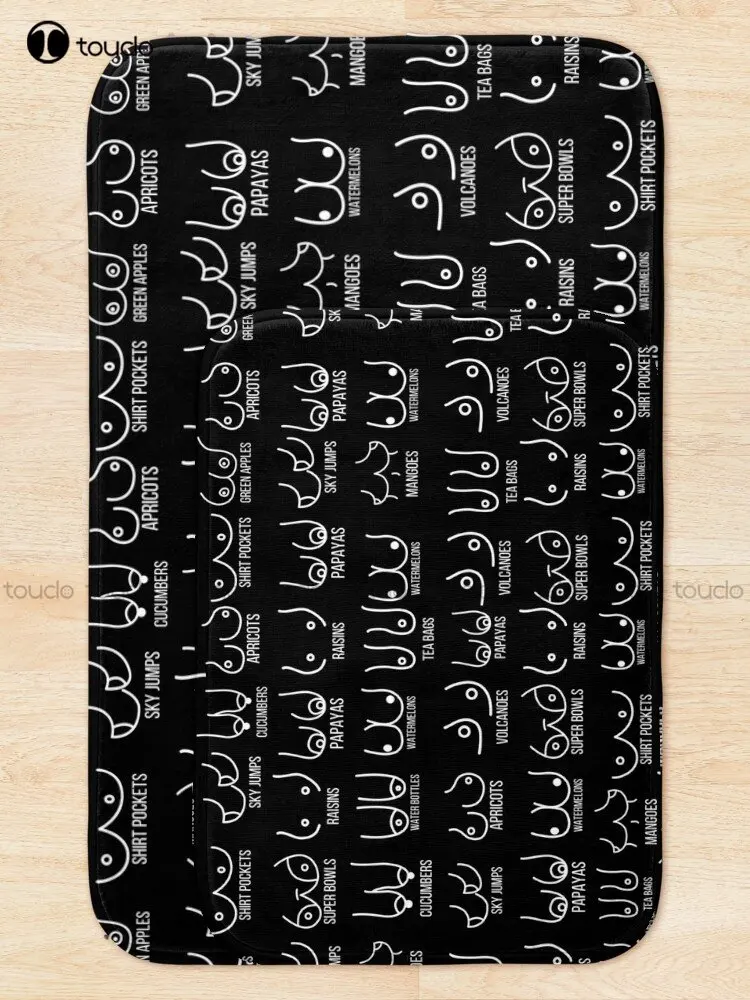 touclo
GREEN APP
SKY JUM
MANGOE
TEA BAGS
RAISINS
APRICOTS
PAPAYAS
WATERMELONS
VOLCANOES
SUPER BOWLS
SHIRT POCKETS
GREEN APPLES
SKY JUMPS
MANGOES
A BAGS
RAISINS
WATERMELONS
SHIRT POCKETS
APRICOTS
CUCUMBERS
SKY JUMPS
SHIRT POCKETS
APPLES
GREEN
SK
TEA
APRICOTS
PAPAYAS
WATERMELONS
VOLCANOES
SUPER BOWLS
SHIRT POCKETS
GREEN APPLES
SKY JUMPS
MANGOES
TEA BAGS
RAISINS
WATERMELONS
SHIRT POCKETS
PAPAYAS
WATERMELONS
VOLCANOES
SUPER BOWLS
SHIRT POCKETS
touclo
touclo
APRICOTS
RAISINS
TEA BAGS
PAPAYAS
RAISINS
WATERMELONS
CUCUMBERS
PAPAYAS
WATERMELONS
VOLCANOES
SUPER BOWLS
SHIRT POCKETS
SKY JUMPS
RAISINS
WATER BOTTLES
APRICOTS
WATERMELONS
MANGOES
SHIRT POCKETS
SUPER BOWLS
CUCUMBERS
SKY JUMPS
PAPAYAS
TEA BAGS